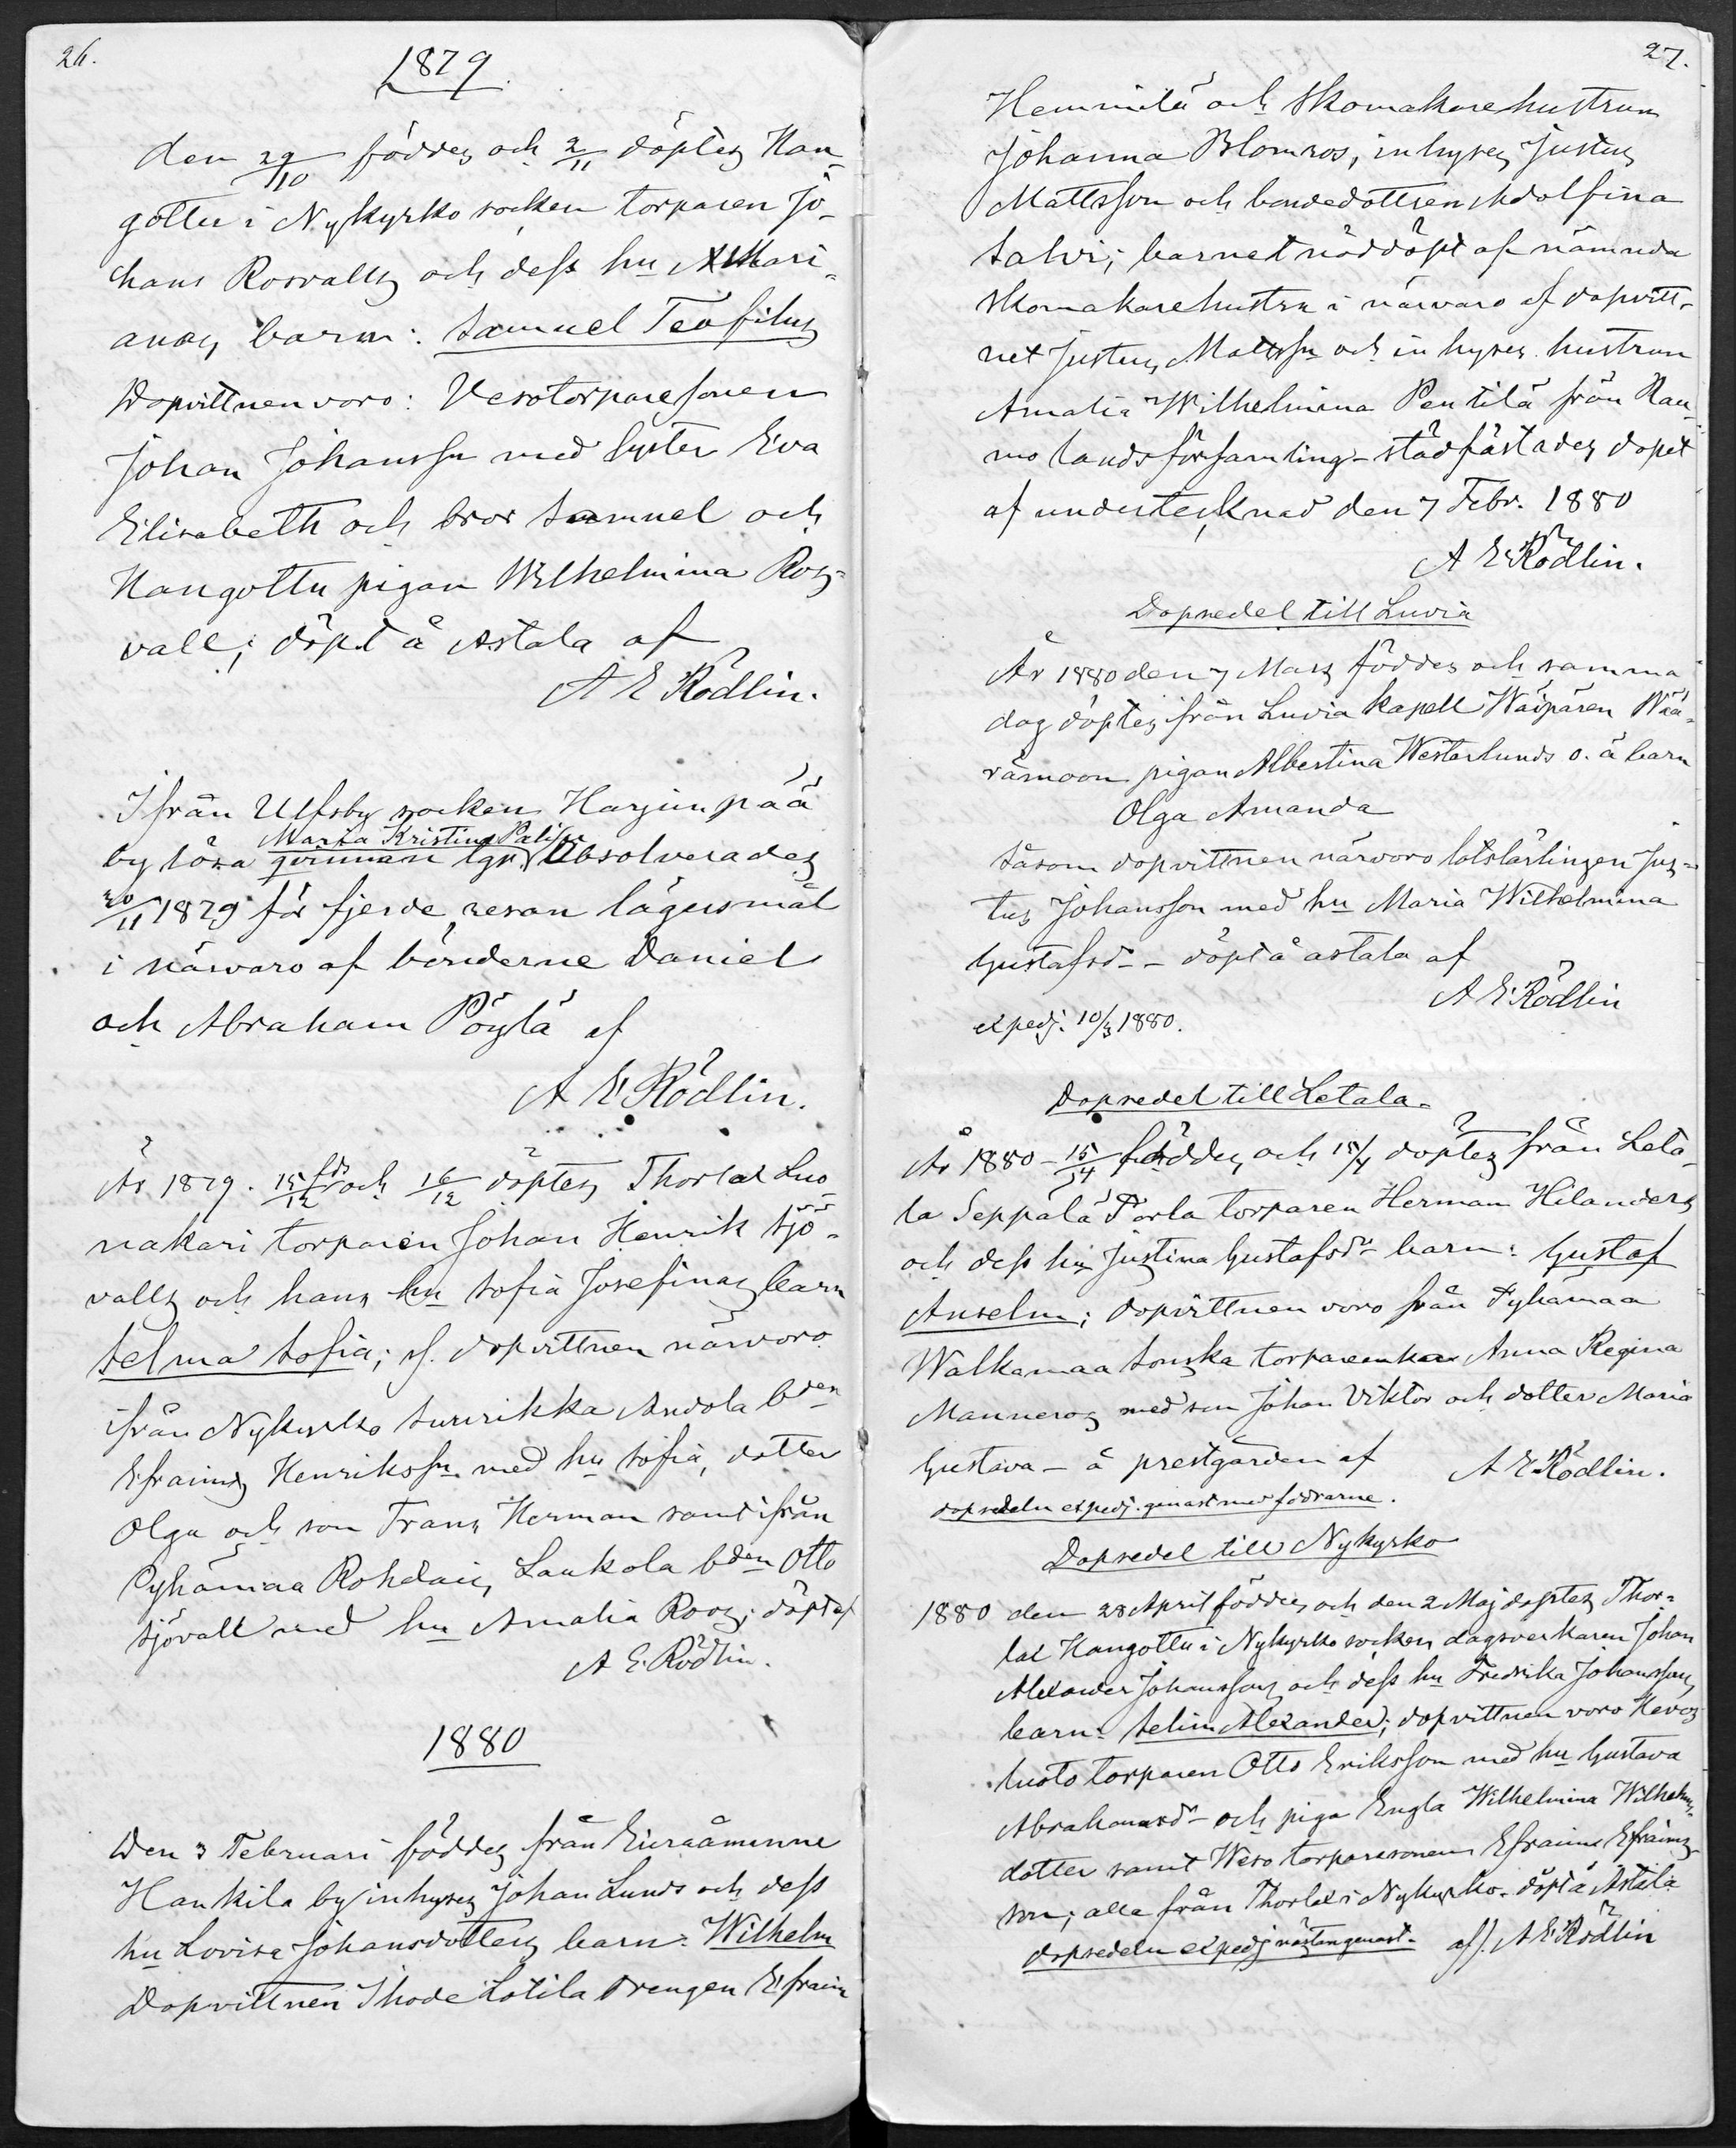 26.
1879.
den 29/10 föddes och 2/11 döptes Han-
gottu i Nykyrko socken torparen Jo-
hans Rosvalls och dess hu A Mari-
anas barn: Samuel Teofilus
Dopvittnen voro: Vesotorparesonen
Johan Johansson med syster Eva
Elisabeth och bror Samuel och
Hangottu pigan Wilhelmina Ros-
vall; döpt å Astala af
A E Rödlin.
Ifrån Ulfsby socken Harjunpää
Maria Kristina
by lösa qvinnan Absolverades
20/11 1879 för fjerde resan lägersmål
i närvaro af bönderne Daniel
och Abraham Pöylä af
A E Rödlin.
År 1879. 15/12 fds och 16/12 döptes Thorlax Luo-
nakari torparen Johan Henrik Sjö-
valls och hans hu Sofia Josefinas barn
Selma Sofia; s. dopvittnen närvoro
ifrån Nykyrko Suurikka Andola bden
Efraim Henriksson med hu Sofia, dotter
Olga och son Frans Herman samt ifrån
Pyhämaa Rohdais Laukola bden Otto
Sjövall med hu Amalia Roos; döpt af
A E. Rödlin.
1880
Den 3 Februari föddes från Euraåminne
Hankila by inhyses Johan Lunds och dess
hu Lovisa Johansdotters barn: Wilhelm
Dopvittnen Ihode Lotila Drengen Efraim
27.
Hemmilä och Skomakarehustrun
Johanna Blomros, inhyses Justus
Mattsson och bondedottren Adolfina
Salvi; barnet nöddöpt af nämnda
Skomakarehustru i närvaro af dopvitt-
net Justus Mattsson och inhyses hustrun
Amalia Wilhelmina Pentilä från Rau-
mo landsförsamling - stadfästades dopet
af undertecknad den 7 Febr. 1880
A E Rödlin.
Dopsedel till Luvia
År 1880 den 7 Mars föddes och samma
dag döptes från Luvia kapell Wäipären Wää-
rämoon pigan Albertina Westerlunds o. ä barn
Olga Amanda
Såsom dopvittnen närvoro lotslärlingen Jus-
tus Johansson med hu Maria Wilhelmina
Gustafsd. - döpt å Astala af
A E Rödlin
expedj. 10/3 1880.
Dopsedel till Letala.
År 1880 - 15/14 föddes och 18/4 döptes från Leta-
la Seppälä Torla torparen Herman Hilanders
och dess hu Justina Gustafsdr barn: Gustaf
Anselm; dopvittnen voro från Pyhämaa
Walkamaa Sonska torpareenkan Anna Regina
Manneros med son Johan Viktor och dotter Maria
Gustava - å prestgården af A E Rödlin.
dopsedeln expedj. genast med föddrarne.
Dopsedel till Nykyrko
1880 den 28 April föddes och den 2 Maj döptes Thor-
lax Hangottu i Nykyrko socken dagsverkaren Johan
Alexander Johanssons och dess hu Fredrika Johanssons
barn: Selim Alexander; dopvittnen voro Hevos
luoto torparen Otto Eriksson med hu Gustava
Abrahamsd- och piga Engla Wilhelmina Wilhelms-
dotter samt Weso torparesonen Efraim Efraims-
son; alla från Thorlax i Nykyrko. döpt å Astala
dopsedeln expedj nästan genast. af A E Rödlin